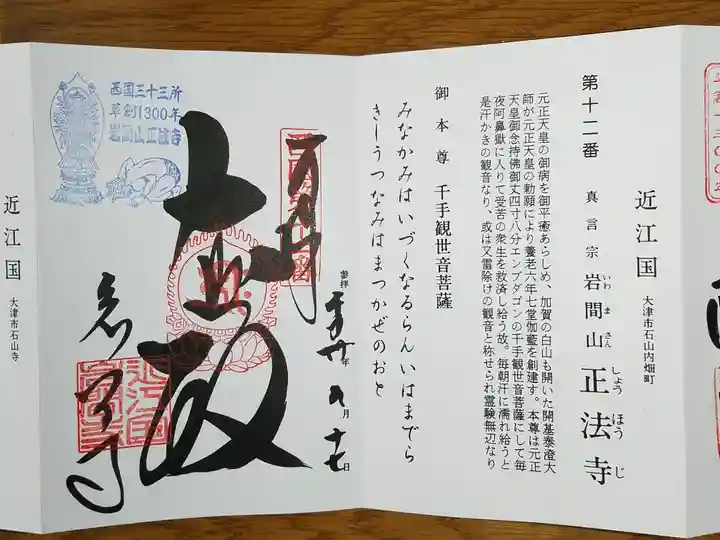 近江国
大津市石山内畑町
第十二番
真言宗
岩間山
いわ ま さん
正法寺
しょう ほう じ
元正天皇の御病を御平癒あらしめ、加賀の白山も開いた開基泰澄大
師が元正天皇の勅願により養老六年七堂伽藍を創建す。本尊は元正
天皇御念持佛御丈四寸八分エンブダゴンの千手観世音菩薩にして毎
夜阿鼻獄に入りて受苦の衆生を救済し給う故。毎朝汗に濡れ給うと
是汗かきの観音なり、或は又雷除けの観音と称せられ霊験無辺なり
御本尊 千手観世音菩薩
みなかみはいづくなるらんいはまでら
きしうつなみはまつかぜのおと
参拝
年
九月
十七日
奉拝
大悲殿
岩間寺
西国三十三所
草創1300年
岩間山正法寺
近江国
大津市石山寺